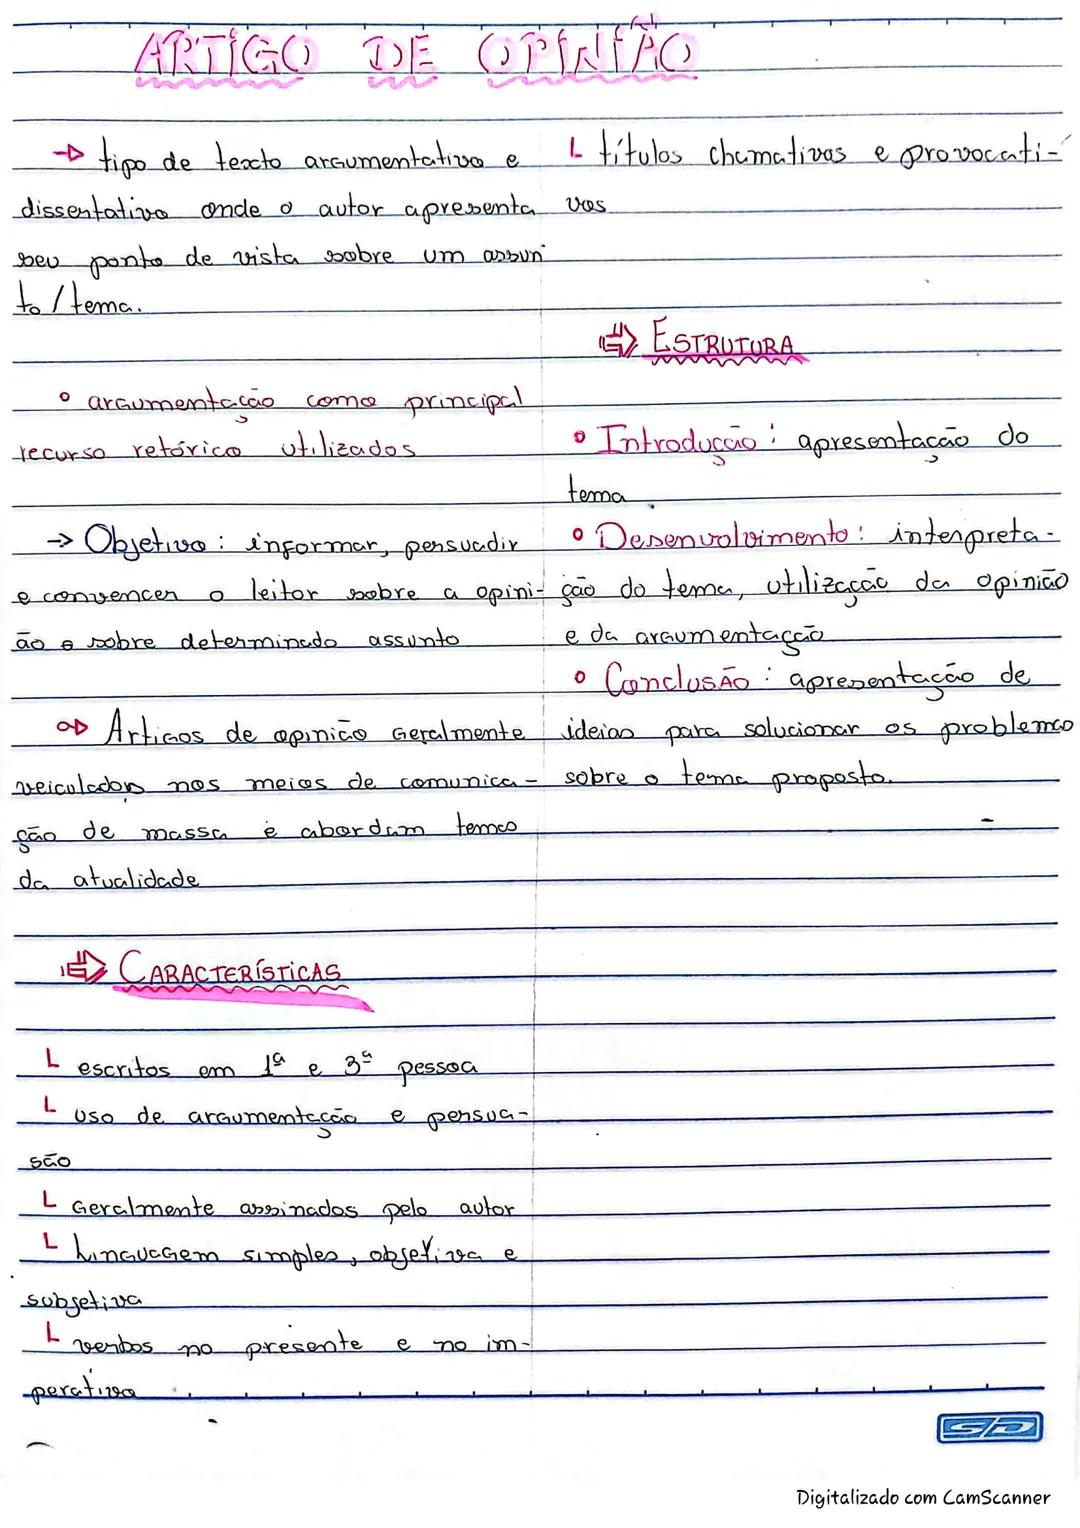 ARTIGO DE OPINIÃO
→ tipo de texto argumentativo e
dissertativo onde o autor apresenta
seu ponto de vista sobre um assun
to / tema.
° argumentação como principal
recurso retórico utilizados
→ Objetivo: informar, persuadir
e convencer o leitor sobre a opini-
ão e sobre determinado assunto
Artigos de opinião geralmente
veiculados nos meios de comunica-
ção de massa e abordam temas
da atualidade
⇒ CARACTERÍSTICAS
L escritos em 1ª e 3ª pessoa
L uso de argumentação e persua-
são
L Geralmente assinados pelo autor
L Linguagem simples, objetiva e
subjetiva
L verbos no presente e no im-
perativo
L títulos chamativos e provocati-
vos
⇒ ESTRUTURA
° Introdução: apresentação do
tema
° Desenvolvimento: interpreta-
ção do tema, utilização da opinião
e da argumentação
° Conclusão: apresentação de
ideias para solucionar os problemas
sobre o tema proposto.
SD
Digitalizado com CamScanner